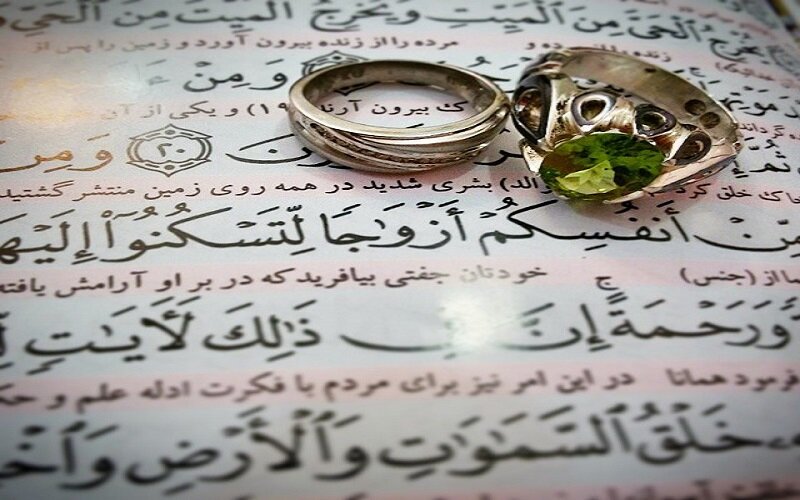 يُخْرِجُ ٱلْحَيَّ مِنَ ٱلْمَيِّتِ وَيُخْرِجُ ٱلْمَيِّتَ مِنَ ٱلْحَيِّ
مرده را از زنده بیرون آورد و زمین را پس از
وَمِنْ
ک بیرون آرند (۱۹) و یکی از آن
ثُمَّ ٢٠ وَمِنْ
خاک خلق کرد بشری شدید در همه روی زمین منتشر گشتید
مِّنْ أَنفُسِكُمْ أَزْوَٰجًا لِّتَسْكُنُوٓا۟ إِلَيْهَا
ما از (جنس) خودتان جفتی بیافرید که در بر او آرامش یافته
وَرَحْمَةً ۚ إِنَّ ذَٰلِكَ لَـَٔايَـٰتٍ
فرمود همانا در این امر نیز برای مردم با فکرت ادله علم و حک
خَلْقُ ٱلسَّمَـٰوَٰتِ وَٱلْأَرْضِ وَٱخْ